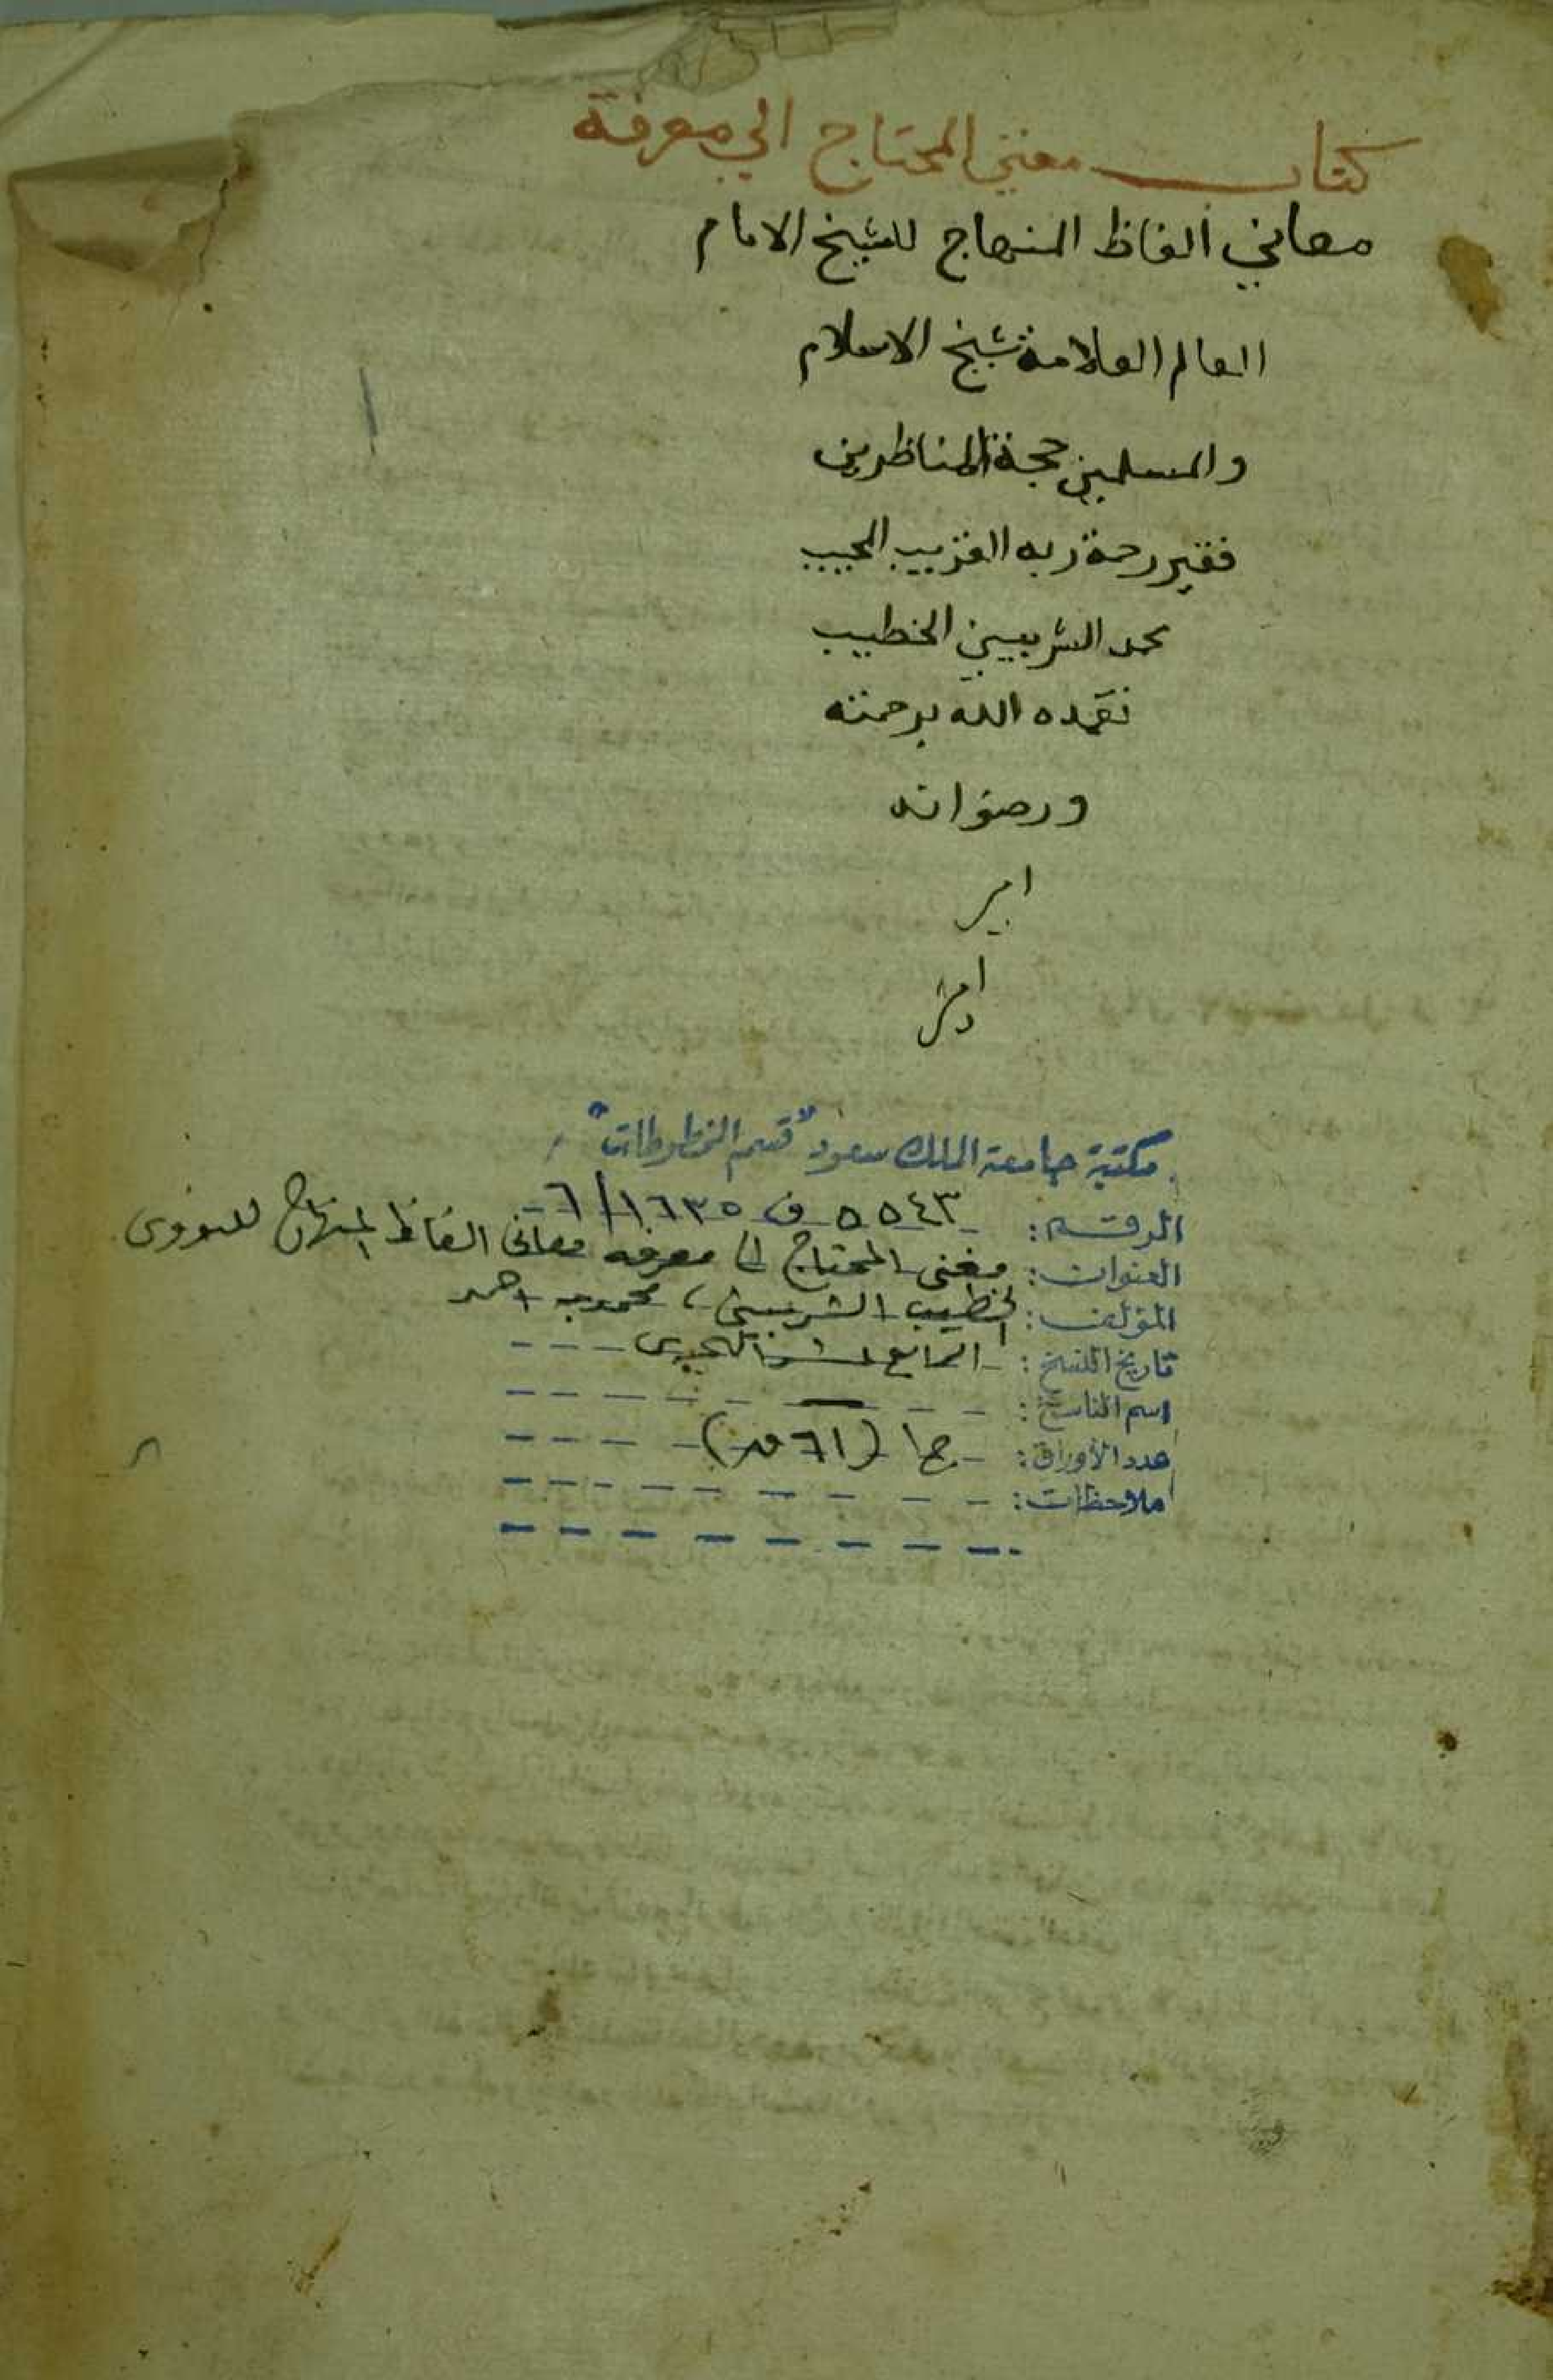 كتاب مغني المحتاج الي معرفة
معاني الفاظ المنهاج للشيخ الامام
العالم العلامة شيخ الاسلام
والمسلمين حجة المناظرين
فقير رحمة ربه القريب المجيب
محمد الشربيني الخطيب
تغمده الله برحمته
ورضوانه
امين
مكتبة جامعة الملك سعود "قسم المخطوطات"
الرقم: ٥٥٤٣ ف ١٦٣٥/٦
العنوان: مغنى المحتاج إلى معرفة معانى الفاظ المنهاج للنووى
المؤلف: الخطيب الشربينى، محمد بن احمد
تاريخ النسخ: الرابع عشر الهجرى
اسم الناسخ:
عدد الأوراق: ج١ (٦١ ق)
ملاحظات: